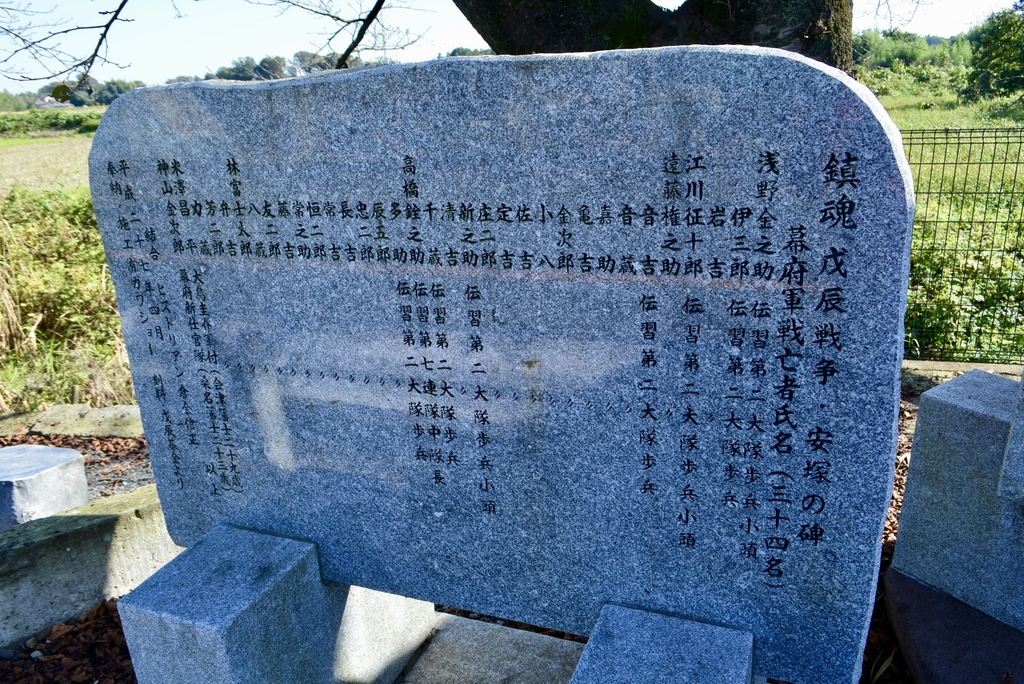 鎮魂 戊辰戦争・安塚の碑
幕府軍戦亡者氏名(三十四名)
浅野金之助 伝習第二大隊歩兵小頭
伊三郎 伝習第二大隊歩兵
岩吉 〃
江川征十郎 伝習第二大隊歩兵小頭
遠藤権之助 〃
音吉 伝習第二大隊歩兵
音蔵 〃
嘉助 〃
亀吉 〃
金次郎 〃
小八 〃
佐吉 〃
定吉 〃
庄二郎 〃
新之助 伝習第二大隊歩兵小頭
清吉 伝習第二大隊歩兵
千蔵 伝習第七連隊中隊長
高橋銓之助 伝習第二大隊歩兵
多助 〃
辰五郎 〃
忠二郎 〃
長吉 〃
常吉 〃
恒二郎 〃
常之助 〃
藤吉 〃
友二郎 〃
八蔵 〃
林富士太郎 〃
弁吉 〃
芳二郎 〃
力蔵
米澤昌平
神山金次郎 幕府新
結合 ヒストリアン
平成二十七年四月
奉納 施工